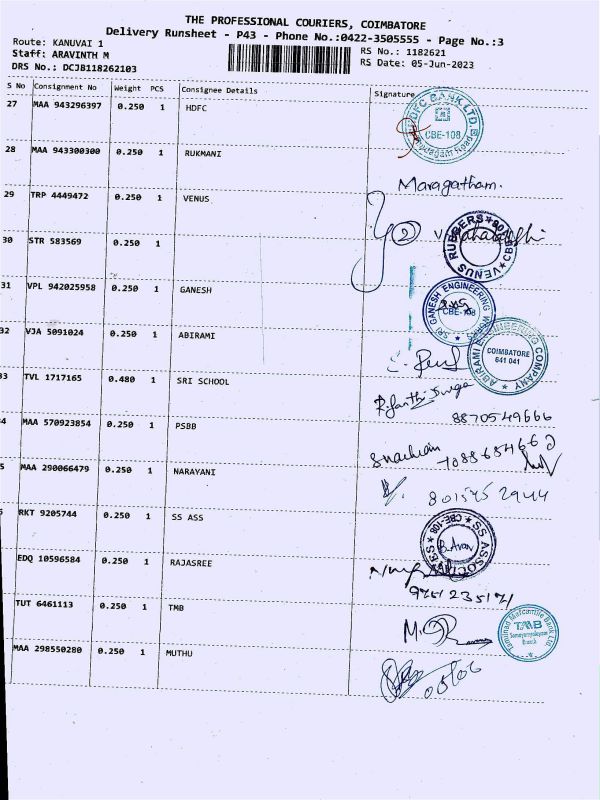 THE PROFESSIONAL COURIERS, COIMBATORE
Delivery Runsheet - P43 - Phone No.:0422-3505555 - Page No.:3
Route: KANUVAI 1
Staff: ARAVINTH M
DRS No.: DCJB118262103
RS No.: 1182621
RS Date: 05-Jun-2023
S No Consignment No Weight PCS Consignee Details Signature
27 MAA 943296397 0.250 1 HDFC
HDFC BANK LTD.
CBE-108
28 MAA 943300300 0.250 1 RUKMANI
Maragatham.
29 TRP 4449472 0.250 1 VENUS
2
VENUS RUBBERS
30 STR 583569 0.250 1
31 VPL 942025958 0.250 1 GANESH
SRI GANESH ENGINEERING
CBE-108
32 VJA 5091024 0.250 1 ABIRAMI
ABIRAMI ENGINEERING COMPANY
COIMBATORE
641 041
33 TVL 1717165 0.480 1 SRI SCHOOL
8870549666
4 MAA 570923854 0.250 1 PSBB
5 MAA 290066479 0.250 1 NARAYANI
RKT 9205744 0.250 1 SS ASS
SS ASSOCIATES CBE-108
EDQ 10596584 0.250 1 RAJASREE
TUT 6461113 0.250 1 TMB
Tamilnad Mercantile Bank Ltd
TMB
Branch
MAA 298550280 0.250 1 MUTHU
05/06